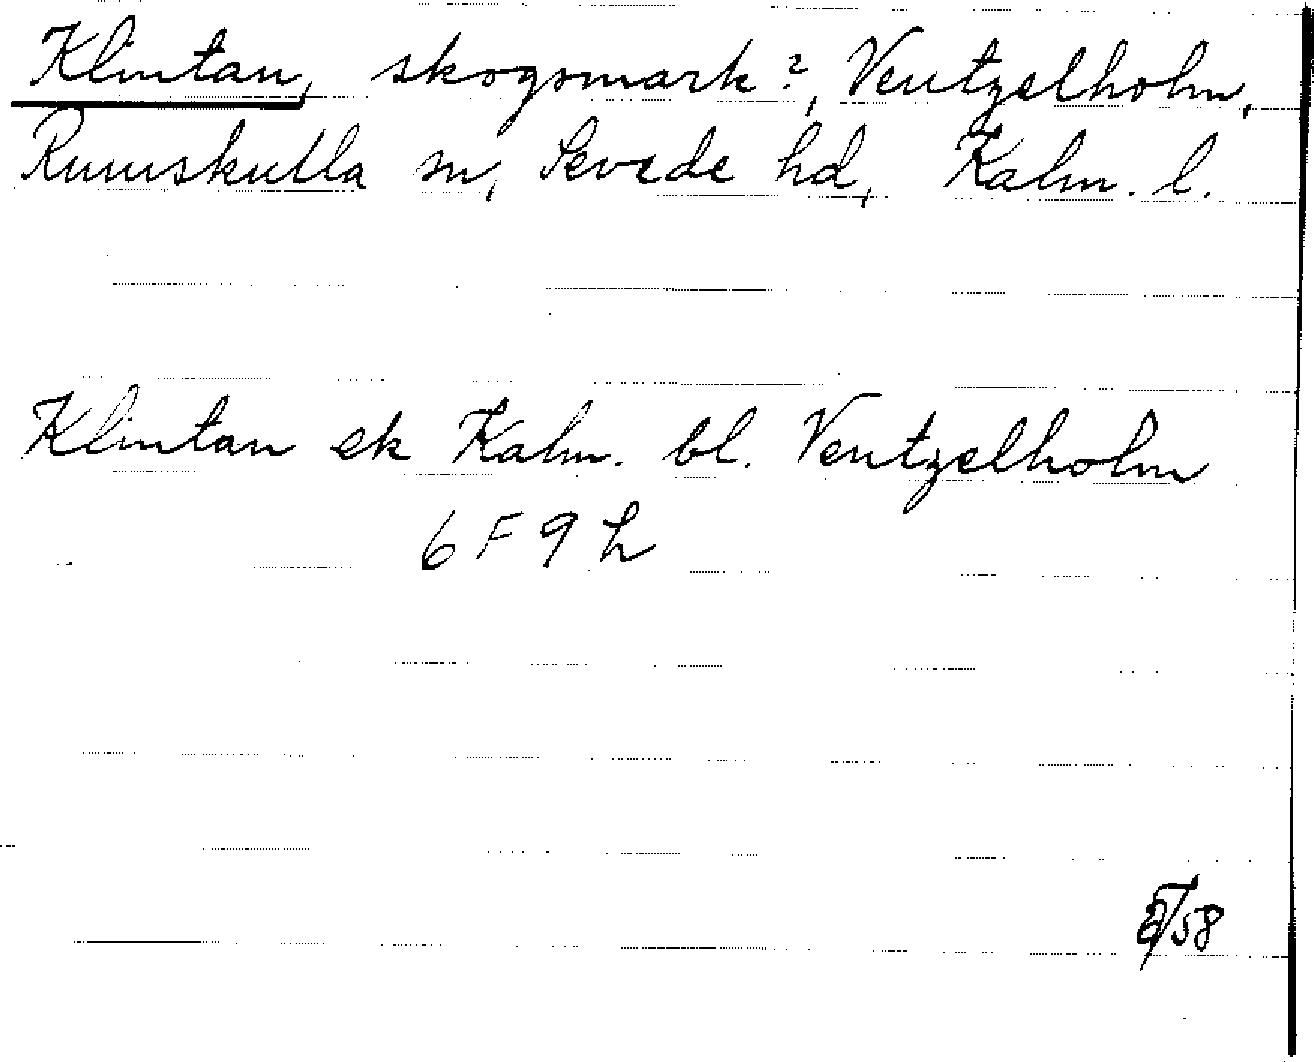 Klintan, skogsmark?, Ventzelholm,
Rumskulla sn, Sevede hd, Kalm. l.
Klintan ek Kalm. bl. Ventzelholm
6 F 9 h